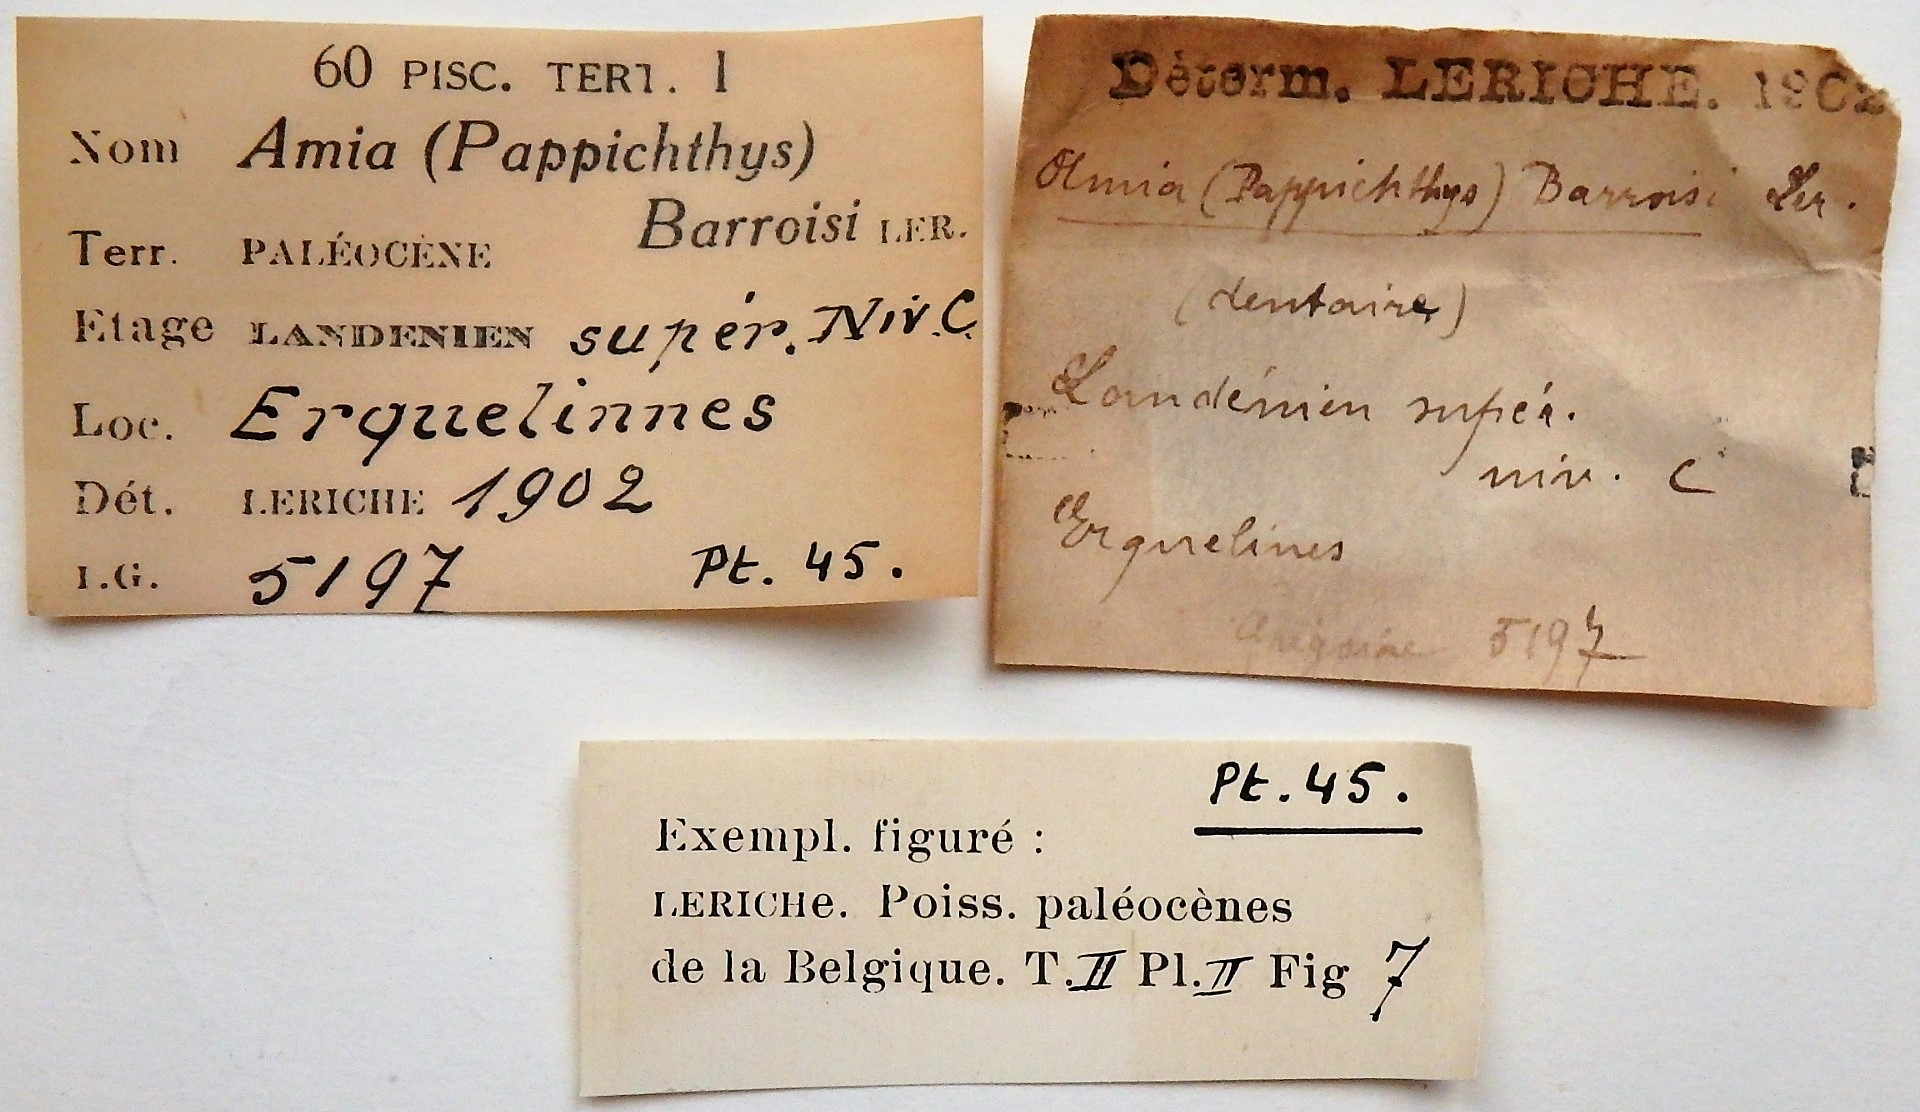 60 PISC. TERT. I
Nom Amia (Pappichthys)
Barroisi LER.
Terr. PALÉOCÈNE
Etage LANDENIEN supér. Niv. C.
Loc. Erquelinnes
Dét. LERICHE 1902
I.G. 5197 Pt. 45.
Déterm. LERICHE. 1902
Amia (Pappichthys) Barroisi Ler.
(dentaire)
Landénien supér.
niv. C
Erquelines
5197
Pt. 45.
Exempl. figuré :
LERICHe. Poiss. paléocènes
de la Belgique. T. II Pl. II Fig 7